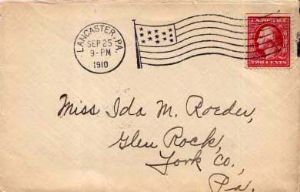 LANCASTER, PA.
SEP 25
9-PM
1910
U.S. POSTAGE
TWO CENTS
Miss Ida M. Roeder,
Glen Rock,
York Co,
Pa.